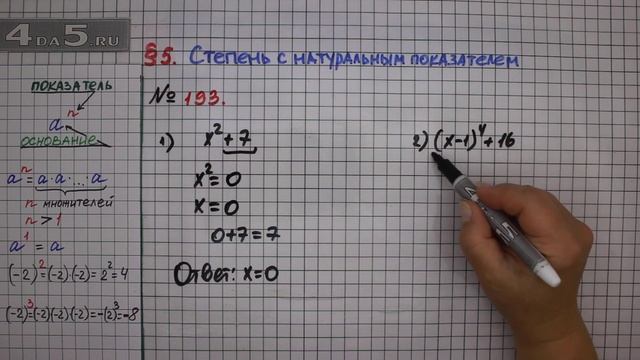 4DA5.RU
§5. Степень с натуральным показателем
показатель
aⁿ
основание
aⁿ = a·a·...·a
n множителей
n > 1
a¹ = a
(-2)² = (-2)·(-2) = 2² = 4
(-2)³ = (-2)(-2)(-2) = -(2)³ = -8
№ 193.
1) x² + 7
x² = 0
x = 0
0+7 = 7
Ответ: x = 0
2) (x-1)⁴ + 16